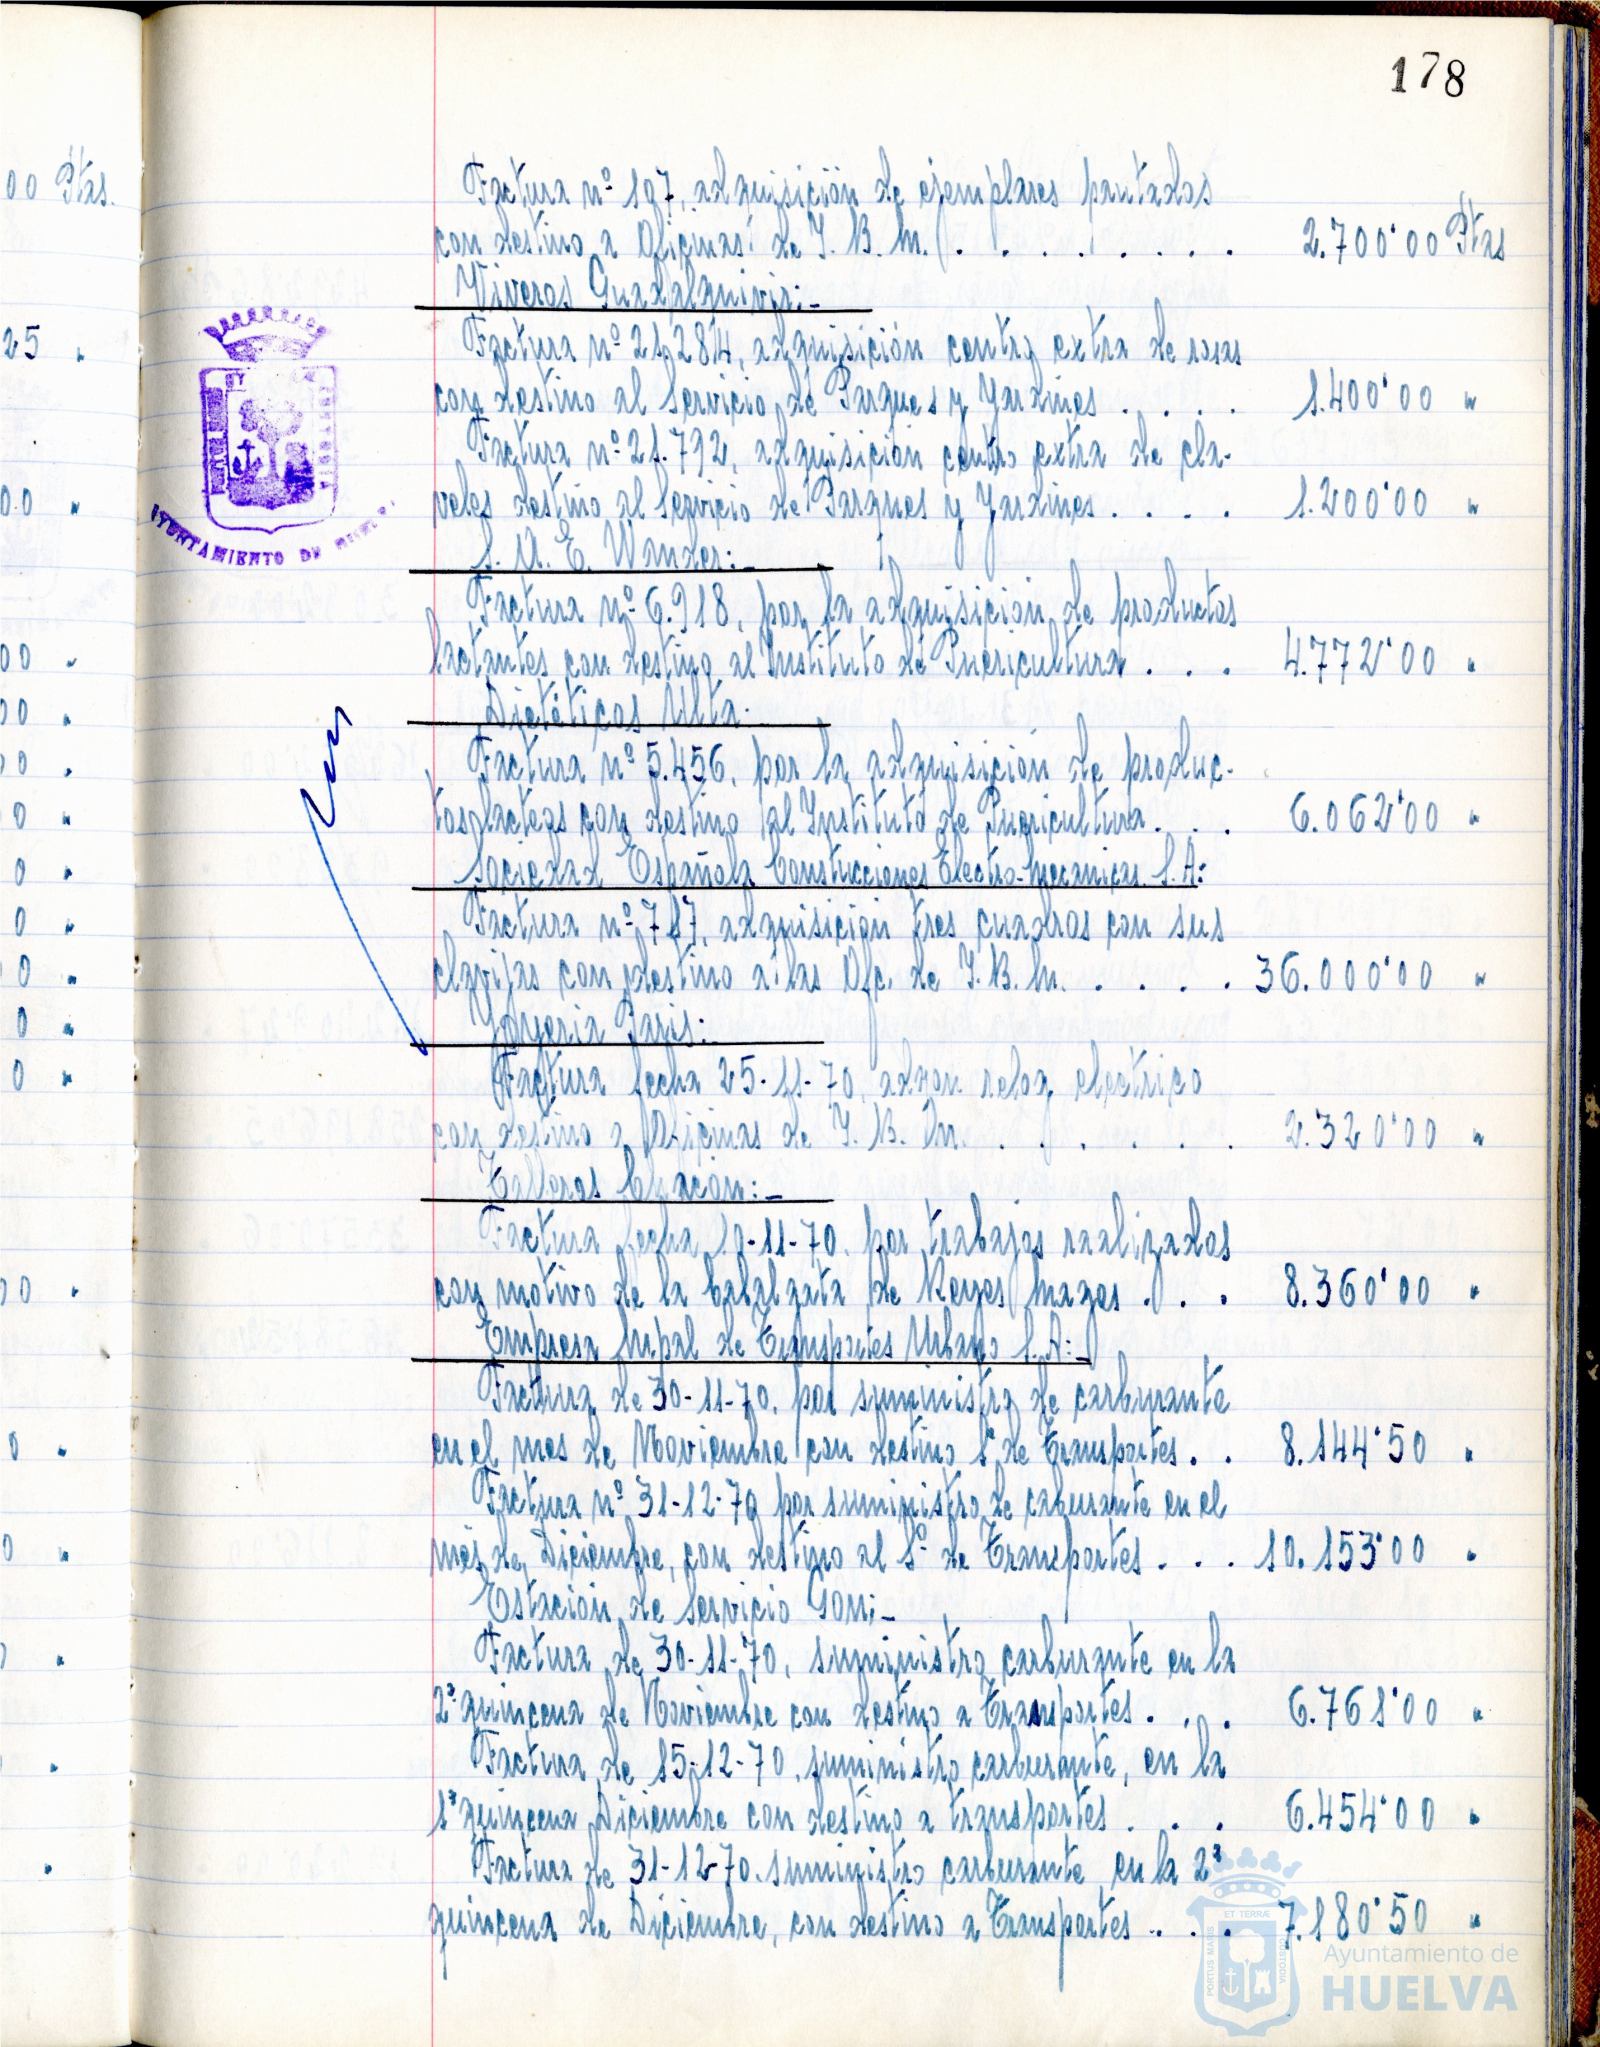 178
00 Ptas.
Factura nº 197, adquisición de ejemplares pautados
con destino a Oficinas de I. B. M. . . . . . . . 2.700'00 Ptas
Viveros Guadalquivir:-
25 "
Factura nº 21.284, adquisición centro extra de rosas
con destino al Servicio de Parques y Jardines . . . . 1.400'00 "
Factura nº 21.792, adquisición centro extra de cla-
veles destino al Servicio de Parques y Jardines . . . . 1.200'00 "
AYUNTAMIENTO DE
S. A. E. Wander:-
Factura nº 6.918, por la adquisicion de productos
lactantes con destino al Instituto de Puericultura . . . 4.772'00 "
Dietéticos Ulta.
Factura nº 5.456, por la adquisición de produc-
tos lacteos con destino al Instituto de Puericultura . . . 6.062'00 "
Sociedad Española Construcciones Electro-Mecanicas S.A:
Factura nº 787, adquisición tres cuadros con sus
clavijas con destino a las Ofc. de I. B. M. . . . . 36.000'00 "
Yoyeria Paris:
Factura fecha 25-11-70, adxon. relox electrico
con destino a Oficinas de I. B. M. . . . . . 2.320'00 "
Talleres Chacón:-
Factura fecha 10-11-70, por trabajos realizados
con motivo de la Cabalgata de Reyes Magos . . . 8.360'00 "
Empresa Mpal de Transportes Urbano S.A:-
Factura de 30-11-70, por suministro de carburante
en el mes de Noviembre con destino Sº de Transportes . . 8.144'50 "
Factura nº 31-12-70 por suministro de caburante en el
mes de Diciembre, con destino al Sº de Transportes . . . 10.153'00 "
Estación de Servicio Goni-
Factura de 30-11-70, suministro carburante en la
2ª quincena de Noviembre con destino a Transportes . . . 6.761'00 "
Factura de 15-12-70, suministro carburante, en la
1ª quincena Diciembre con destino a transportes . . . 6.454'00 "
Factura de 31-12-70. suministro carburante en la 2ª
quincena de Diciembre, con destino a Transportes . . . 7.180'50 "
ET TERRÆ
PORTUS MARIS
CUSTODIA
Ayuntamiento de
HUELVA